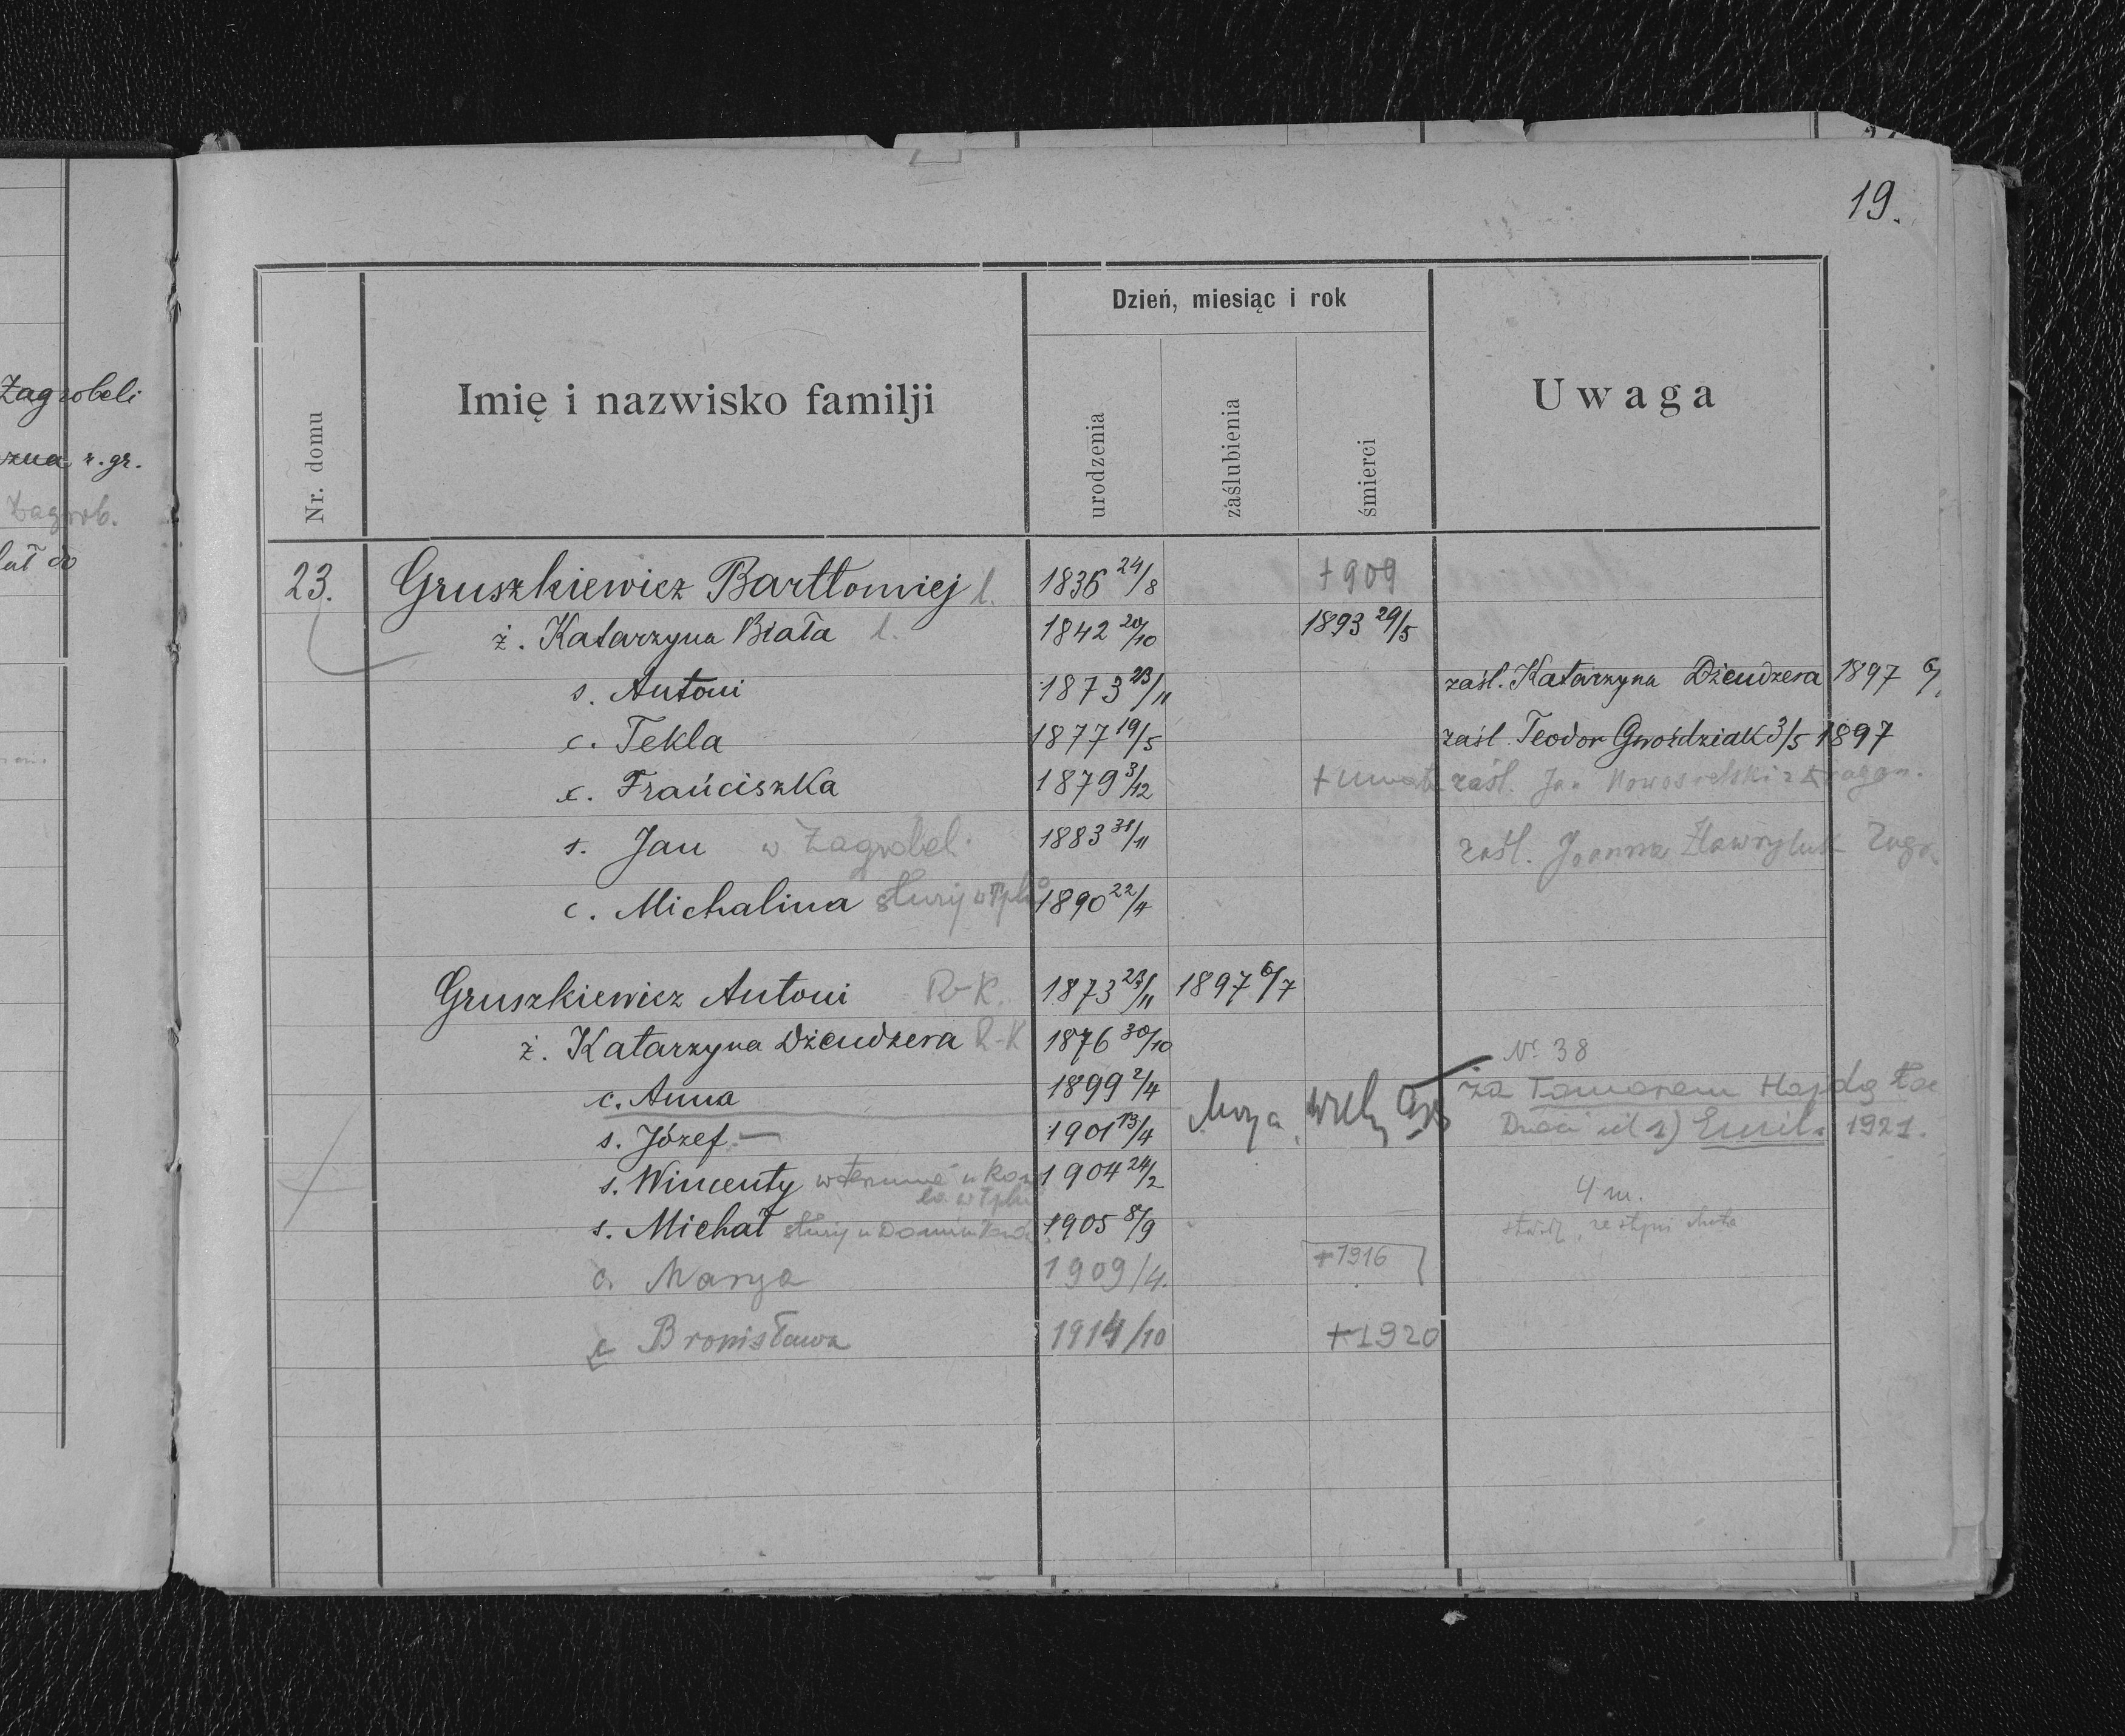 19.
Zagrobeli
r. gr.
Zagrob.
Nr. domu
Imię i nazwisko familji
Dzień, miesiąc i rok
urodzenia
zaślubienia
śmierci
Uwaga
23. Gruszkiewicz Bartłomiej ł. 1836 24/8 +909
ż. Katarzyna Biała ł. 1842 20/10 1893 29/5
s. Antoni 1873 23/11 zaśl. Katarzyna Dżendzera 1897 6/
c. Tekla 1877 19/5 zaśl Teodor Gwoździak 3/5 1897
c. Franciszka 1879 3/12 + zaśl. Jan Nowosielski z
s. Jan w Zagrobeli 1883 31/11 zaśl. Joanna Hawryluk Zagr.
c. Michalina służy w Tplu 1890 22/4
Gruszkiewicz Antoni R-K. 1873 23/11 1897 6/7
ż. Katarzyna Dżendzera R-K 1876 30/10
Nr 38
c. Anna 1899 2/4 za Hajdą
s. Józef 1901 13/4 1) Emil 1921.
s. Wincenty w terminie u 1904 24/2
w Tplu
4 m.
s. Michał służy u 1905 8/9
c. Marya 1909/4. +1916
c Bronisława 1914/10 +1920